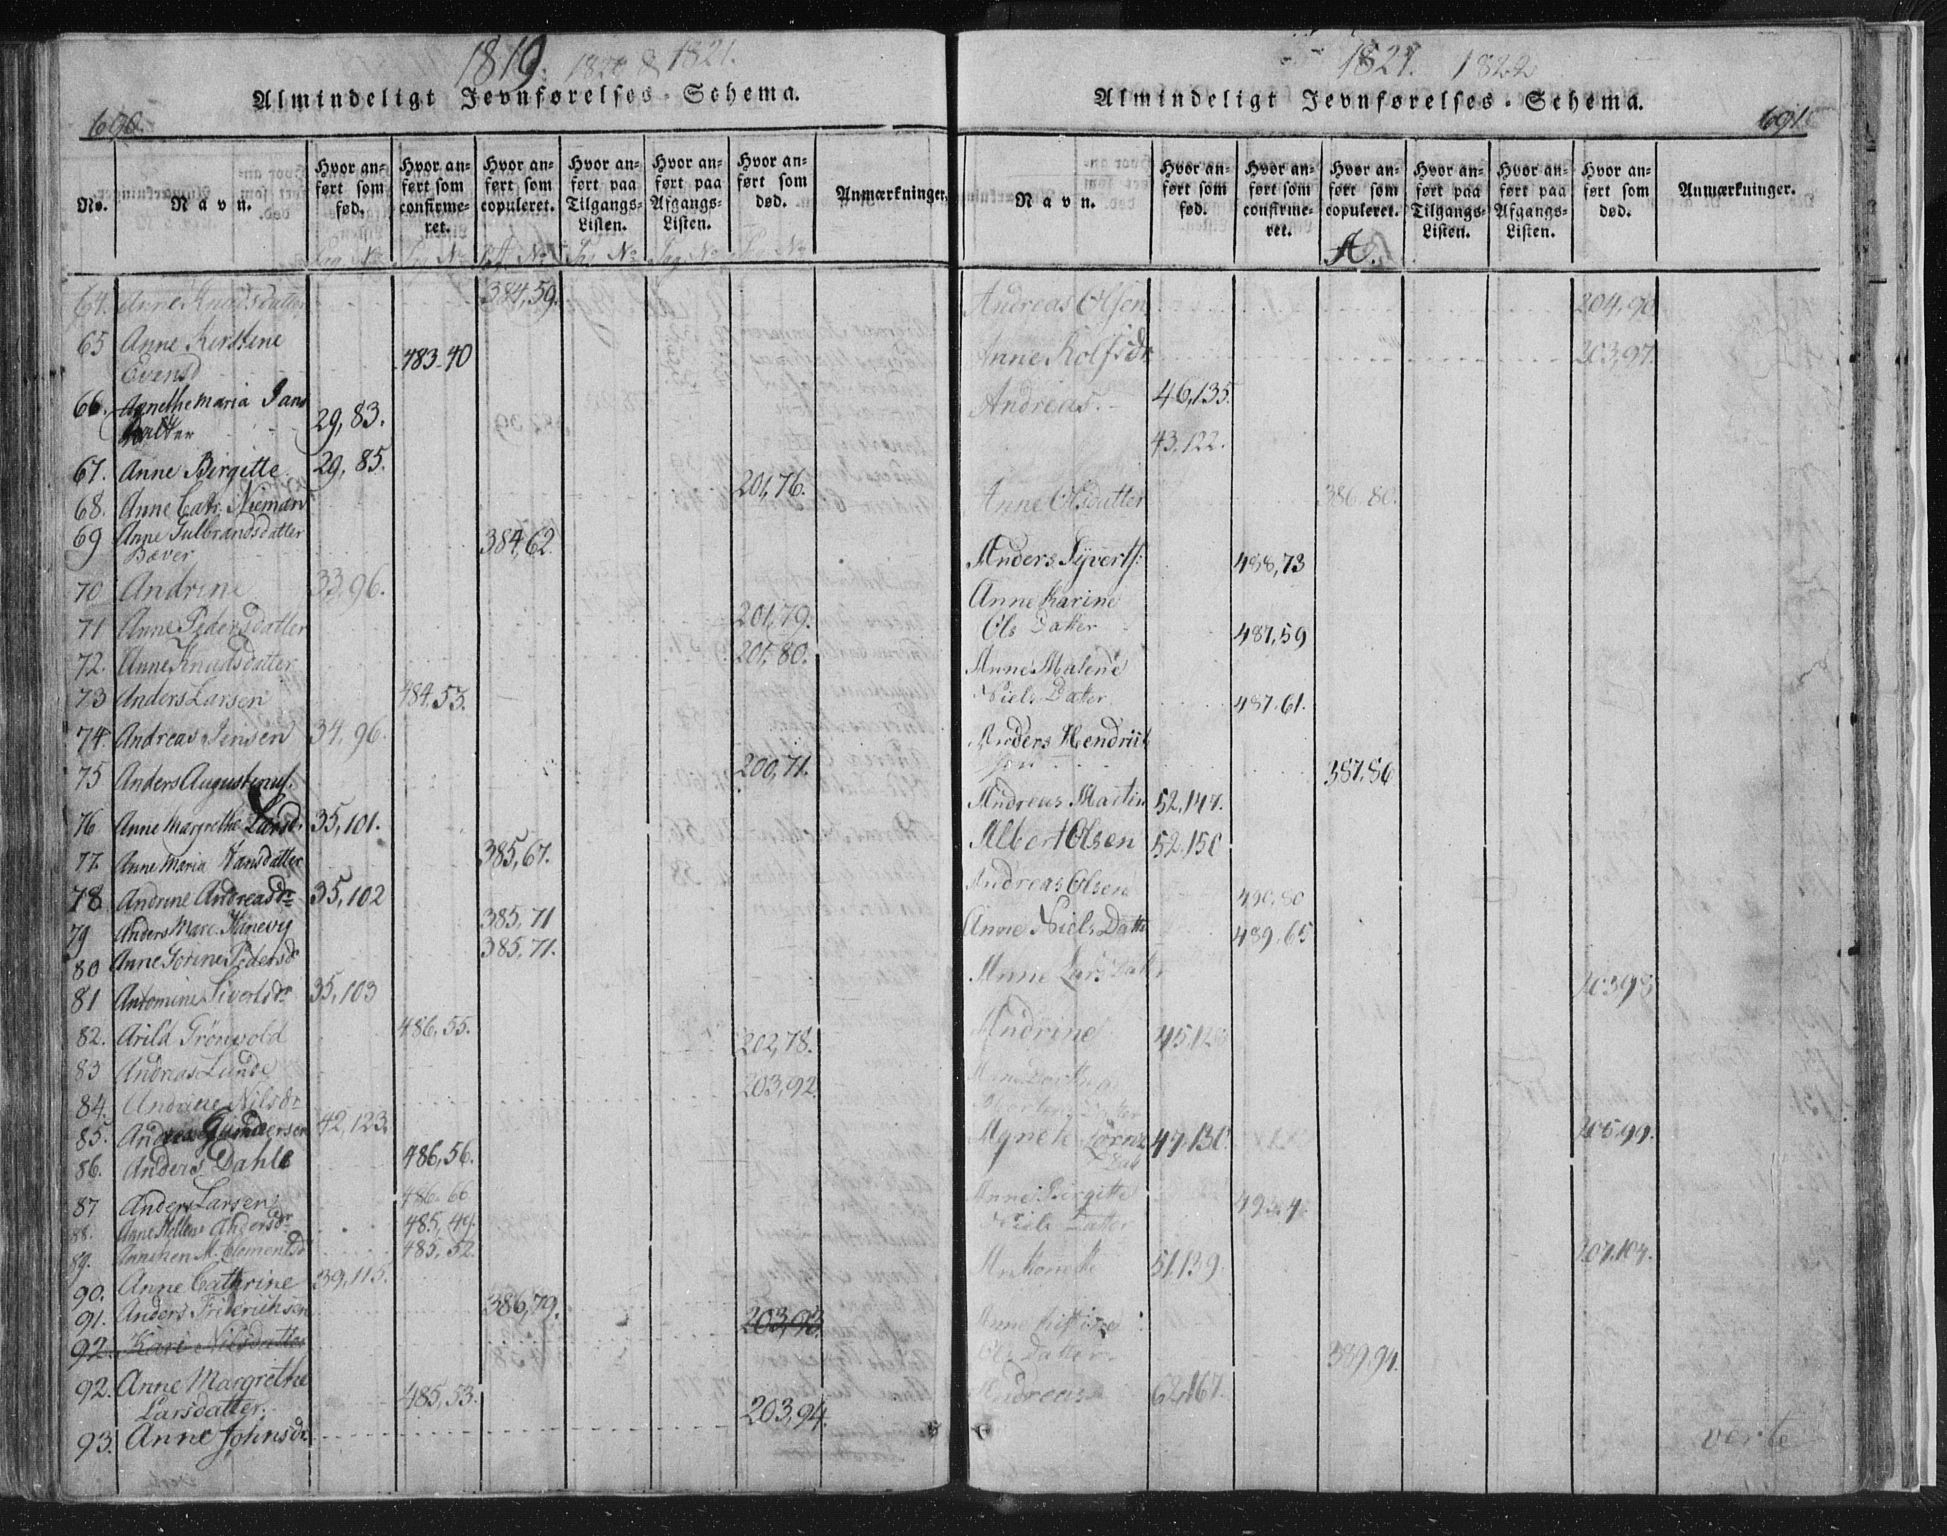 1819. 1820 & 1821.
Almindeligt Jevnførelses-Schema.
690.
No.
Navn.
Hvor anført som fød.
Hvor anført som confirmeret.
Hvor anført som copuleret.
Hvor anført paa Tilgangs-Listen.
Hvor anført paa Afgangs-Listen.
Hvor anført som død.
Anmærkninger.
Pag No Pag No Pag No Pag No Pag No P. No
64. Anne Knudsdatter 384,59.
65 Anne Kirstine
Evensd 483.40
66. Agnethe Maria Jans
datter 29,83.
67. Anne Birgitte 29,85.
68. Anne Cath. Nieman 201,76.
69 Anne Gulbrandsdatter
Bæver 384,62
70 Andrine 33,96.
71 Anne Pedersdatter 201,79.
72. Anne Knudsdatter 201,80.
73 Anders Larsen 484,53.
74. Andreas Jensen 34,96.
75 Anders Augustinus. 200,71.
76 Anne Margrethe Larsd. 35,101.
77. Anne Maria Hansdatter 385,67.
78 Andrine Andreasdr 35,102
79 Anders Marc. 385,71
80 Anne Gorine Pedersd 385,71.
81 Antomine Sivertsdr 35,103
82. Arild Grönvold 486,55.
83 Andreas Lunde 202,78.
84. Andrine Nilsdr 203,92.
85. Andreas Gundersen 42,123.
86. Anders Dahle 486,56.
87 Anders Larsen 486.66
88. Anne Hellene Andersdr 485,49.
89. Annichen M. Clementsd 485,52
90. Anne Cathrine 39,115.
91. Anders Friderichsen 386,79.
92. Kari Nilsdatter 203,93.
92. Anne Margrethe
Larsdatter. 485,53.
93. Anne Johnsdr. 203,94.
1821. 1822
Almindeligt Jevnførelses-Schema.
691
Navn.
Hvor anført som fød.
Hvor anført som confirmeret.
Hvor anført som copuleret.
Hvor anført paa Tilgangs-Listen.
Hvor anført paa Afgangs-Listen.
Hvor anført som død.
Anmærkninger.
A.
Andreas Olsen 204,96
Anne Rolfsdr 203,97.
Andreas. 46,135.
43,122.
Anne Olsdatter 386.80.
Anders Syverts: 488,73
Anne Karine
Ols Datter 487,59
Anne Malene
Niels Datter 487.61.
Anders Hendrik
sen 387.86
Andreas Martin 52,147.
Albert Olsen 52,150
Andreas Olsen 490,80
Anne Niels Datter 489,65
Anne Lars Datter 203,98
Andrine 45,12
Datter
Agnete 47,130 205,99.
Anne Birgitte
Niels Datter 493,4
Antonette 51,139. 207,104.
Anne
Ols Datter. 389,94.
Andreas 62,167.
verte